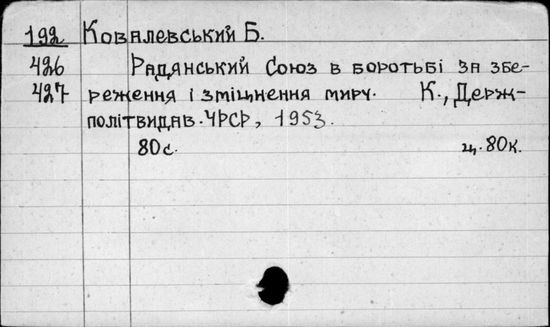 192 Ковалевський Б.
426 Радянський Союз в боротьбі за збе-
427 реження і зміцнення миру. К., Держ-
політвидав. УРСР, 1953.
80с. ц. 80к.